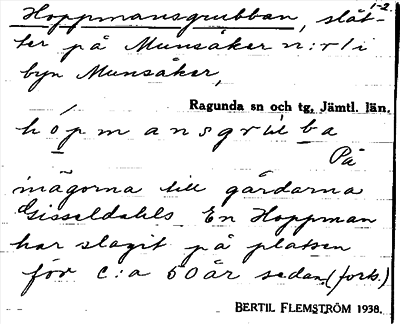 1-2.
Hoppmansgrubban, slåt-
ter på Munsåker n:r 1 i
byn Munsåker,
Ragunda sn och tg, Jämtl. län.
hópmansgrùba
På
inägorna till gårdarna
Gisseldahls En Hoppman
har slagit på platsen
för c:a 50 år sedan, (forts.)
BERTIL FLEMSTRÖM 1938.